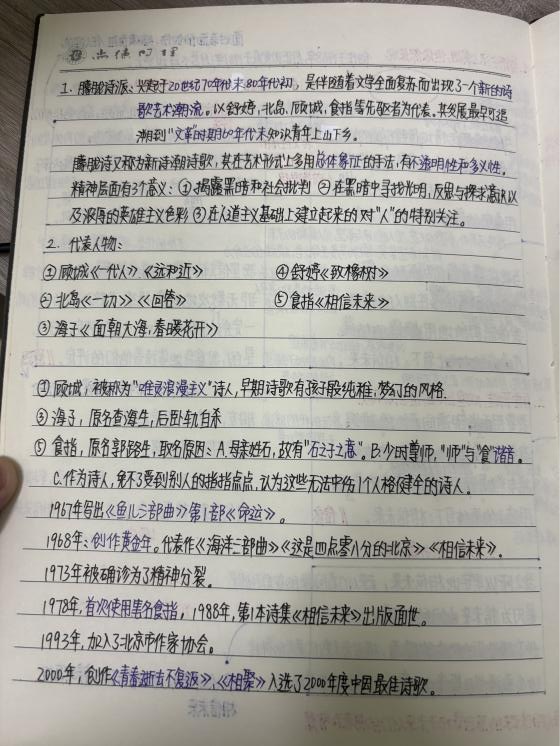 1. 朦胧诗派:兴起于20世纪70年代末80年代初,是伴随着文学全面复苏而出现了一个新的诗
歌艺术潮流。以舒婷,北岛,顾城,食指等先驱者为代表。其发展最早可追
溯到“文革”时期60年代末知识青年上山下乡。
朦胧诗又称为新诗潮诗歌,其在艺术形式上多用总体象征的手法,有不透明性和多义性。
精神层面有3个意义:①揭露黑暗和社会批判 ②在黑暗中寻找光明,反思与探求意识以
及浓厚的英雄主义色彩 ③在人道主义基础上建立起来的对“人”的特别关注。
2. 代表人物:
①顾城《一代人》《远和近》 ④舒婷《致橡树》
②北岛《一切》《回答》 ⑤食指《相信未来》
③海子《面朝大海,春暖花开》
①顾城,被称为“唯灵浪漫主义”诗人,早期诗歌有孩子般纯稚,梦幻的风格.
③海子,原名查海生,后卧轨自杀
⑤食指,原名郭路生,取名原因:A.母亲姓石,故有“石之子之意”。B.少时尊师,“师”与“食”谐音。
C.作为诗人,免不了受到别人的指指点点,认为这些无法中伤1个人格健全的诗人。
1967年写出《鱼儿三部曲》第1部《命运》。
1968年:创作黄金年。代表作《海洋三部曲》《这是四点零八分的北京》《相信未来》。
1973年被确诊为了精神分裂。
1978年,首次使用笔名食指,1988年,第1本诗集《相信未来》出版面世。
1993年,加入了北京市作家协会。
2000年,创作《青春逝去不复返》,《相聚》入选了2000年度中国最佳诗歌。